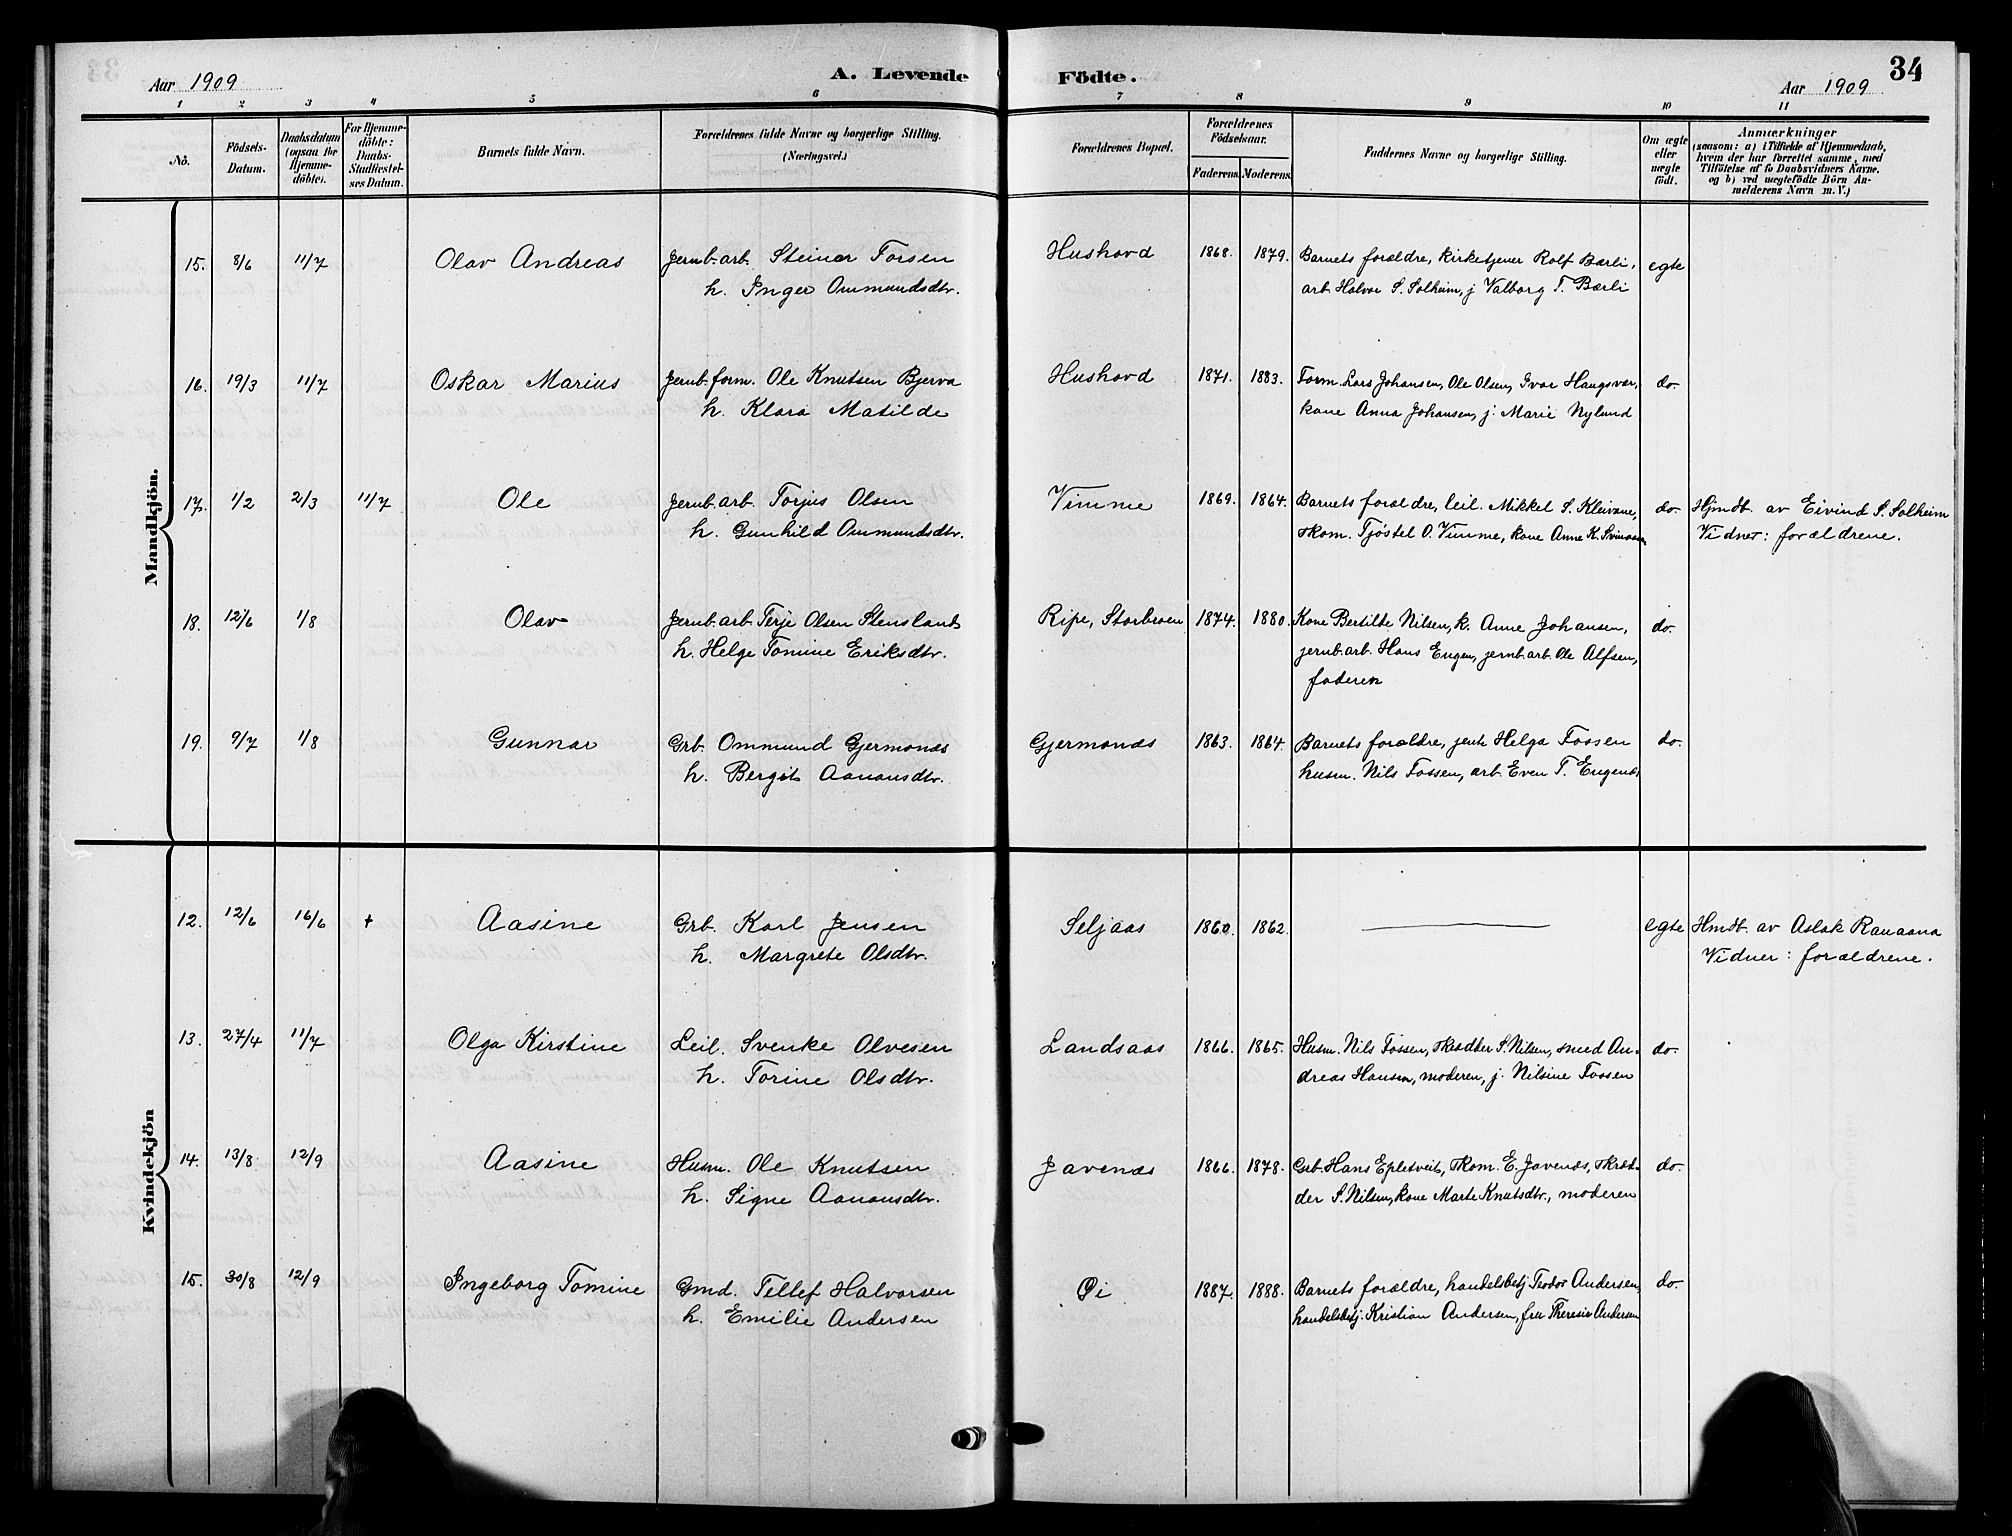 Aar 1909
A. Levende Födte.
34
Aar 1909
1 2 3 4 5 6 7 8 9 10 11
Nô.
Födsels-Datum.
Daabsdatum (ogsaa for Hjemme-döbte).
For Hjemme-döbte: Daabs-Stadfæstel-ses Datum.
Barnets fulde Navn.
Forældrenes fulde Navne og borgerlige Stilling. (Næringsvei.)
Forældrenes Bopæl.
Forældrenes Födselsaar.
Faderens. Moderens.
Faddernes Navne og borgerlige Stilling.
Om ægte eller uægte födt.
Anmærkninger
(saasom: a) i Tilfælde af Hjemmedaab, hvem der har forrettet samme, med Tilföielse af to Daabsvidners Navne, og b) ved uægtefödte Börn An-melderens Navn m. V.)
Mandkjön.
15. 8/6 11/7 Olav Andreas Jernb.arb. Steinar Torsen Hushovd 1868. 1879. Barnets forældre, kirketjener Rolf Bærli, egte
h. Inger Ommundsdtr. arb. Halvor S. Solheim, j Valborg T. Bærli
16. 19/3 11/7 Oskar Marius Jernb.form. Ole Knutsen Bjerva Hushovd 1871. 1883. Form. Lars Johansen, Ole Olsen, Ivar Haugsvær, do.
h. Klara Matilde kone Anna Johansen, j. Marie Nylund
17. 1/2 2/3 11/7 Ole Jernb.arb. Torjus Olsen Vimme 1869. 1864. Barnets forældre, leil. Mikkel S. Kleivane, do. Hjmdt. av Eivind S. Solheim
h. Gunhild Ommundsdtr. Tjøstel O. Vimme, kone Anne K. Vidner: forældrene.
18. 12/6 1/8 Olav Jernb.arb. Terje Olsen Stensland Ripe, Storbroen 1874. 1880. Kone Bertilte Nilsen, k. Anne Johansen, do.
h. Helge Tomine Eriksdtr. jernb.arb. Hans Engen, jernb.arb. Ole Alfsen,
faderen
19. 9/7 1/8 Gunnar Grb. Ommund Gjermonæs Gjermonæs 1863. 1864. Barnets forældre, jente Helga Fossen do.
h. Bergit Aanonsdtr. husm. Nils Fossen, arb. Even T. Engenes
Kvindekjön
12. 12/6 16/6 + Aasine Grb. Karl Jensen Seljaas 1860. 1862. — egte Hmdt. av Aslak Ranaana
h. Margrete Olsdtr. Vidner: forældrene.
13. 27/4 11/7 Olga Kirstine Leil. Svenke Olvesen Landsaas 1866. 1865. Husm. Nils Fossen, skrædder S. Nilsen, smed An- do.
h. Torine Olsdtr. dreas Hansen, moderen, j. Nilsine Fossen
14. 13/8 12/9 Aasine Husm. Ole Knutsen Javenæs 1866. 1878. Grb. Hans Epletveit, skom. E. Javenæs, skræd- do.
h. Signe Aanonsdtr. der S. Nilsen, kone Marte Knutsdtr., moderen
15. 30/8 12/9 Ingeborg Tomine Gmd. Tellef Halvorsen Øi 1887. 1888. Barnets forældre, handelsbetj Teodor Andersen, do.
h. Emilie Andersen handelsbetj. Kristian Andersen, fru Theresie Andersen